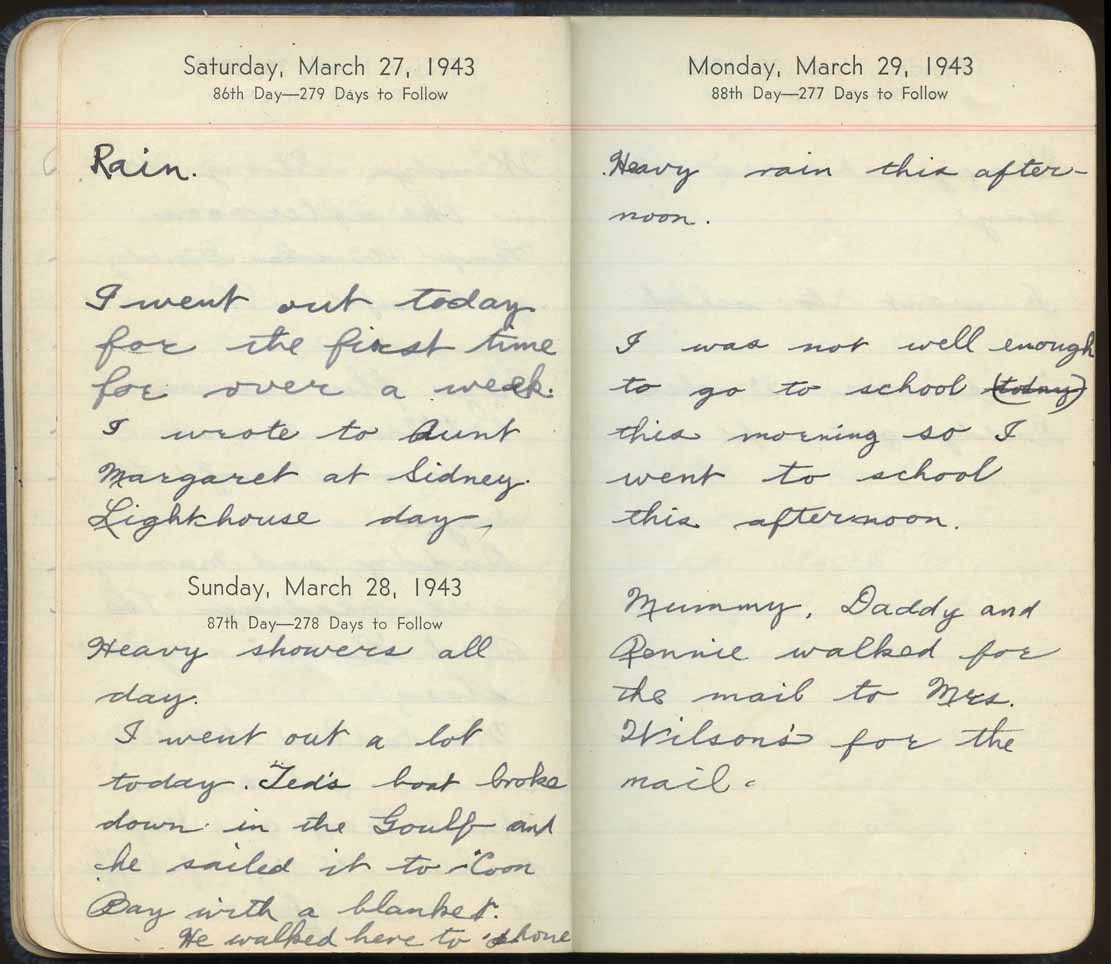 Saturday, March 27, 1943
86th Day—279 Days to Follow
Rain.
I went out today
for the first time
for over a week.
I wrote to Aunt
Margaret at Sidney.
Lightkhouse day.
Sunday, March 28, 1943
87th Day—278 Days to Follow
Heavy showers all
day.
I went out a lot
today. Ted's boat broke
down in the Goulf and
he sailed it to 'Coon
Bay with a blanket.
He walked here to 'phone
Monday, March 29, 1943
88th Day—277 Days to Follow
Heavy rain this after-
noon.
I was not well enough
to go to school (today)
this morning so I
went to school
this afternoon.
Mummy, Daddy and
Rennie walked for
the mail to Mrs.
Wilson's for the
mail.